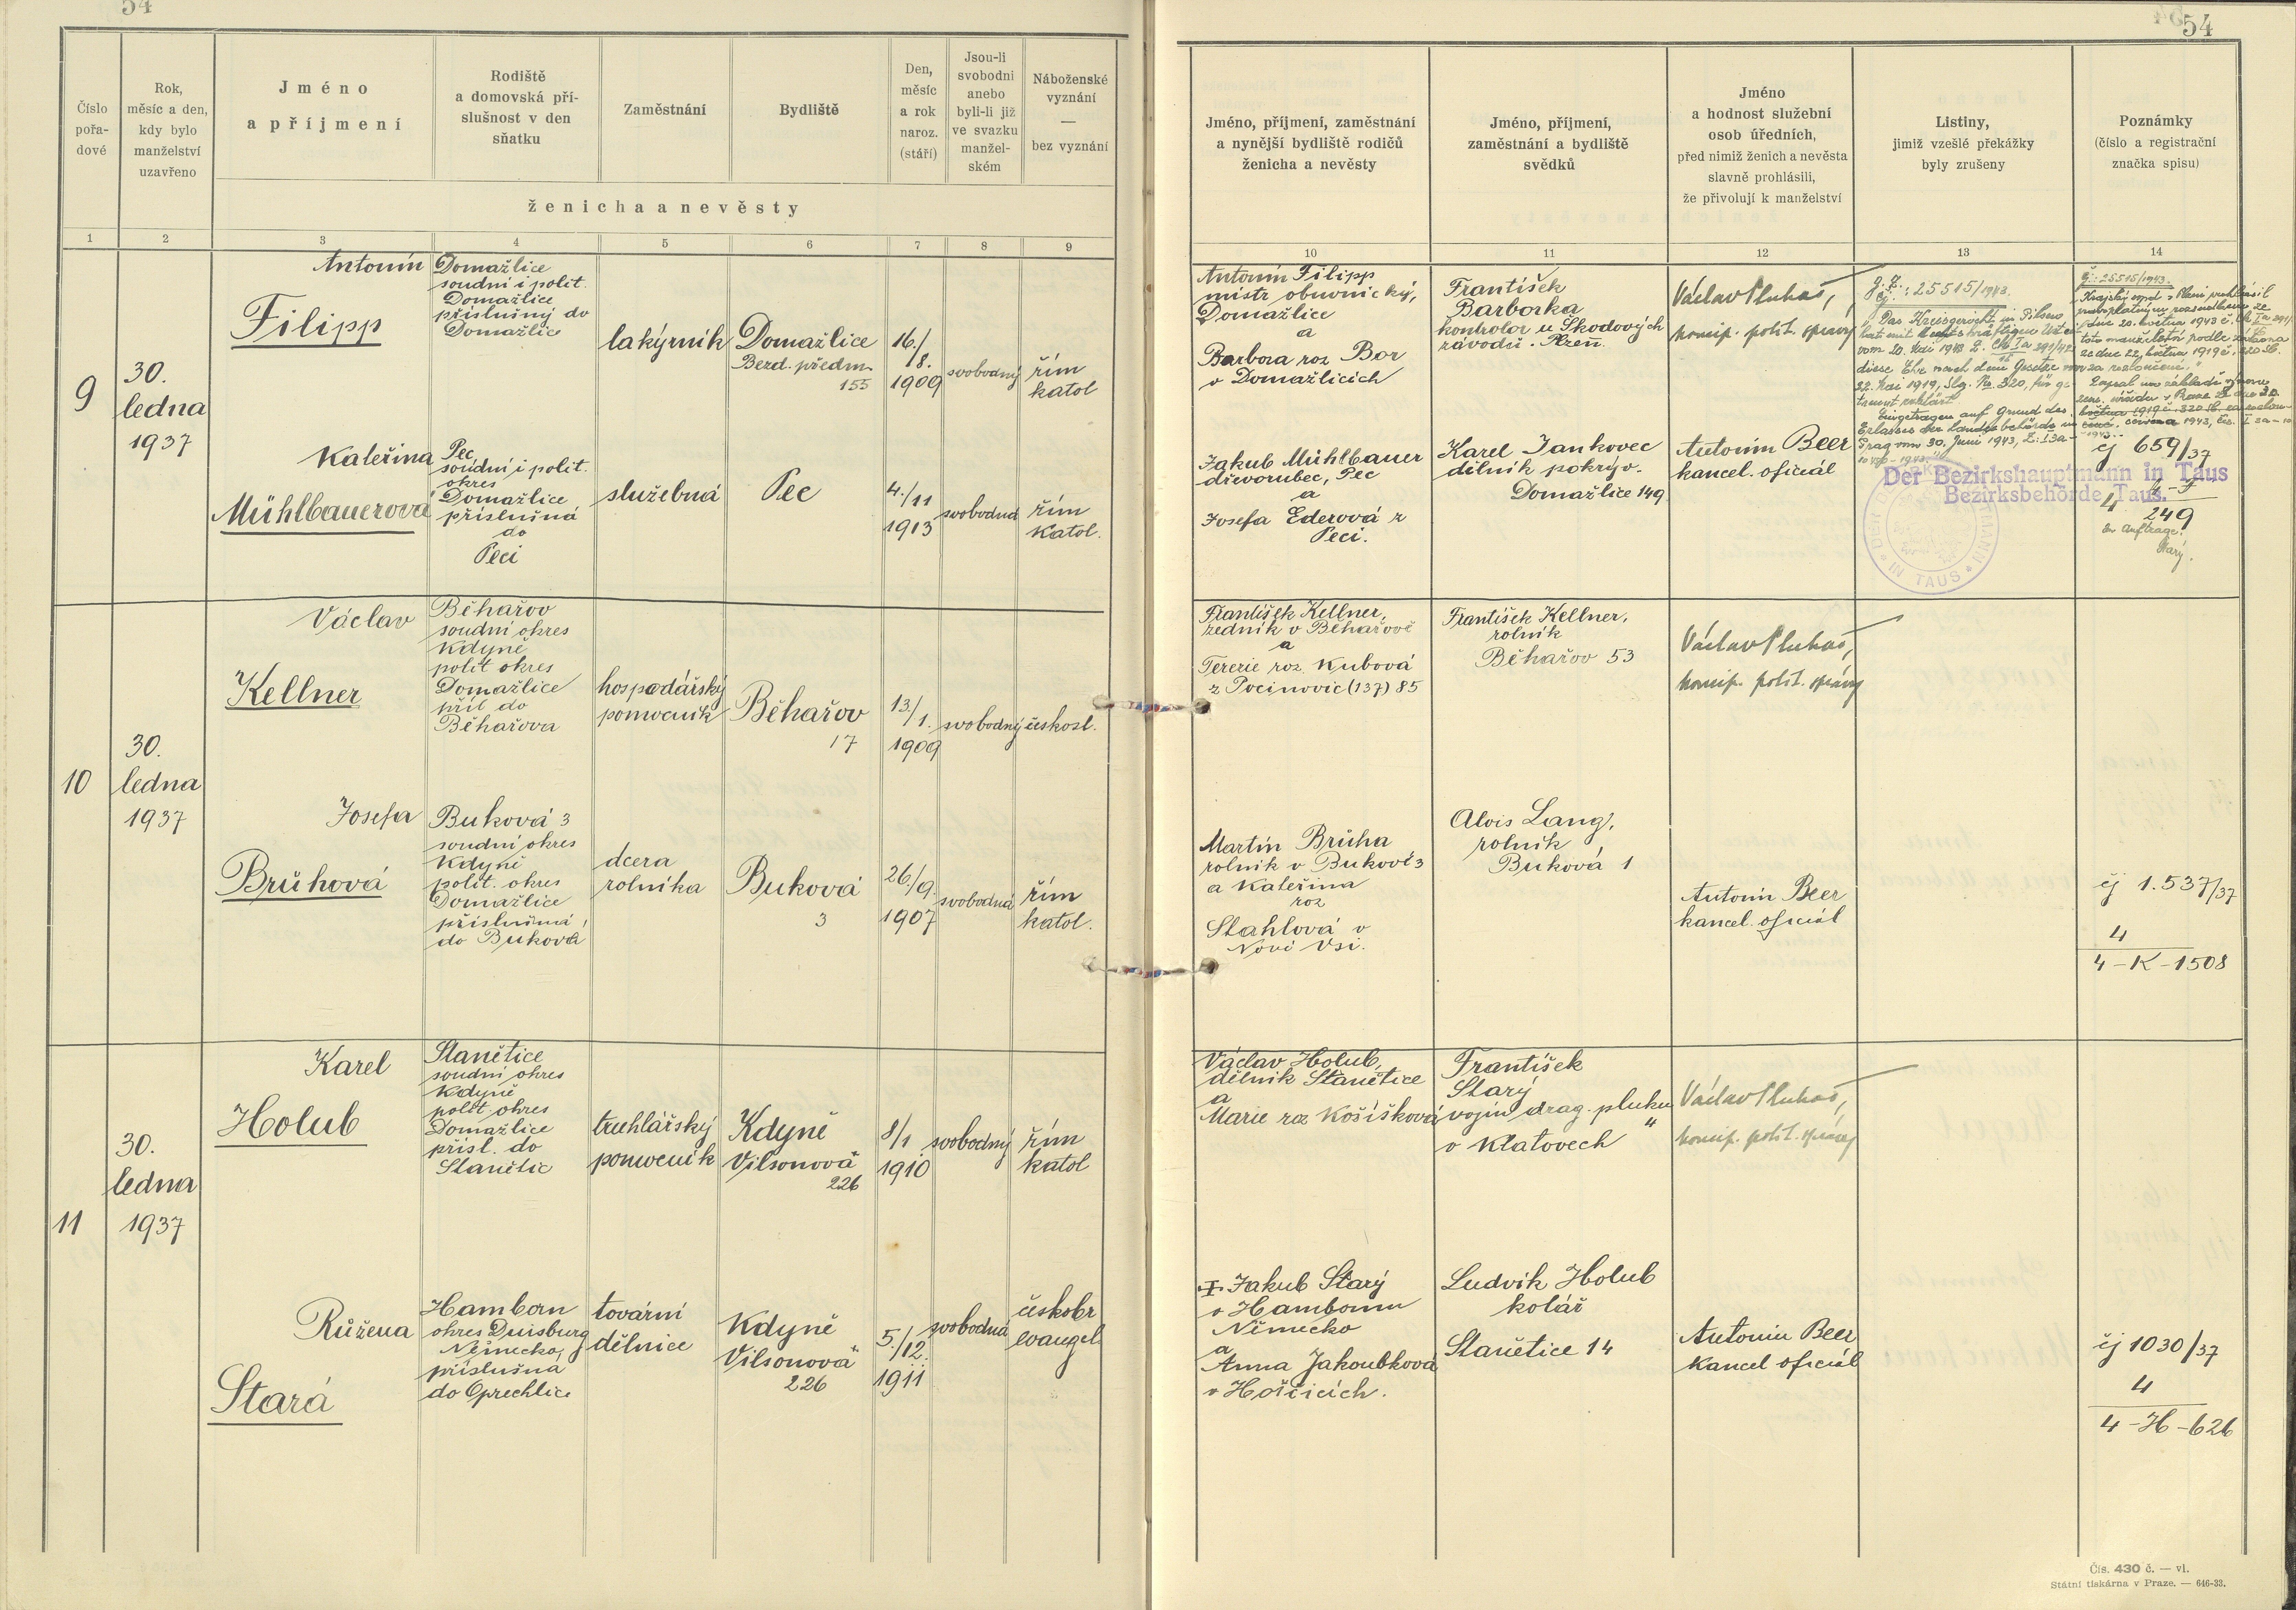 54
54
Číslo
pořa-
dové
Rok,
měsíc a den,
kdy bylo
manželství
uzavřeno
Jméno
a příjmení
Rodiště
a domovská pří-
slušnost v den
sňatku
Zaměstnání
Bydliště
Den,
měsíc
a rok
naroz.
(stáří)
Jsou-li
svobodni
anebo
byli-li již
ve svazku
manžel-
ském
Náboženské
vyznání
—
bez vyznání
ženicha a nevěsty
Jméno, příjmení, zaměstnání
a nynější bydliště rodičů
ženicha a nevěsty
Jméno, příjmení,
zaměstnání a bydliště
svědků
Jméno
a hodnost služební
osob úředních,
před nimiž ženich a nevěsta
slavně prohlásili,
že přivolují k manželství
Listiny,
jimiž vzešlé překážky
byly zrušeny
Poznámky
(číslo a registrační
značka spisu)
1 2 3 4 5 6 7 8 9 10 11 12 13 14
9
30.
ledna
1937
Antonín
Filipp
Domažlice
soudní i polit.
Domažlice
příslušný do
Domažlice
lakýrník
Domažlice
Bezd. předm.
155
16./
8.
1909
svobodný
řím
katol
Antonín Filipp
mistr obuvnický,
Domažlice
a
Barbora roz Bor
v Domažlicích
František
Barborka
kontrolor u Škodových
závodů. Plzeň.
Václav Pluhař,
koncip. polit. správy
Č.j.: 25515/1943.
Das Kreisgericht in Pilsen
hat mit rechtskräftigem Urteil
vom 20. Mai 1943 Z. Ck Ia 291/42
diese Ehe nach dem Gesetze vom
22. Mai 1919, Slg. No 320, für ge-
trennt erklärt.
Eingetragen auf Grund des
Erlasses der Landesbehörde in
Prag vom 30. Juni 1943, Z: I 3a-
čj.: 25515/1943.
Krajský soud v Plzni prohlásil
pravoplatným rozsudkem ze
dne 20. května 1943 č. Ck Ia 291/42
toto manželství podle zákona
ze dne 22. května 1919 č. 320 Sb.
za rozloučené.
Zapsal na základě výnosu
zem. úřadu v Praze
čj 659/37
4
4-F
249
Im Auftrage:
Starý.
Der Bezirkshauptmann in Taus
Bezirksbehörde Taus.
IN TAUS
Kateřina
Mühlbauerová
Pec
soudní i polit.
okres
Domažlice
příslušná
do
Peci
služebná
Pec
4./11
1913
svobodná
řím
katol.
Jakub Mühlbauer
dřevorubec, Pec
a
Josefa Ederová z
Peci.
Karel Jankovec
dělník pokrýv.
Domažlice 149
Antonín Beer
kancel. oficiál
10
30.
ledna
1937
Václav
Kellner
Běhařov
soudní okres
Kdyně
polit okres
Domažlice
přísl do
Běhařova
hospodářský
pomocník
Běhařov
17
13/
1.
1909
svobodný
českosl.
František Kellner,
zedník v Běhařově
a
Terezie roz. Kubová
z Pocinovic (137) 85
František Kellner,
rolník
Běhařov 53
Václav Pluhař,
koncip. polit. správy
Josefa
Brůhová
Buková 3
soudní okres
Kdyně
polit. okres
Domažlice
příslušná
do Buková
dcera
rolníka
Buková
3
26./9.
1907
svobodná
řím
katol.
Martin Brůha
rolník v Bukové 3
a Kateřina
roz
Stahlová v
Nové Vsi.
Alois Lang,
rolník
Buková 1
Antonín Beer
kancel. oficiál
čj 1.537/37
4
4-K-1508
11
30.
ledna
1937
Karel
Holub
Stanětice
soudní okres
Kdyně
polit okres
Domažlice
přísl. do
Stanětic
truhlářský
pomocník
Kdyně
Vilsonova
226
8/1
1910
svobodný
řím
katol
Václav Holub,
dělník Stanětice
a
Marie roz Košíšková
František
Starý
vojín drag. pluku
v Klatovech
Václav Pluhař,
koncip. polit. správy
Růžena
Stará
Hamborn
okres Duisburg
Německo,
příslušná
do Oprechtice
tovární
dělnice
Kdyně
Vilsonova
226
5./12.
1911
svobodná
českobr
evangel
Jakub Starý
v Hambornu
Německo
a
Anna Jakoubková
v Hořčicích.
Ludvík Holub
kolář
Stanětice 14
Antonín Beer
kancel oficiál
čj 1030/37
4
4-H-626
Čís. 430 č. — vl.
Státní tiskárna v Praze. — 646-33.